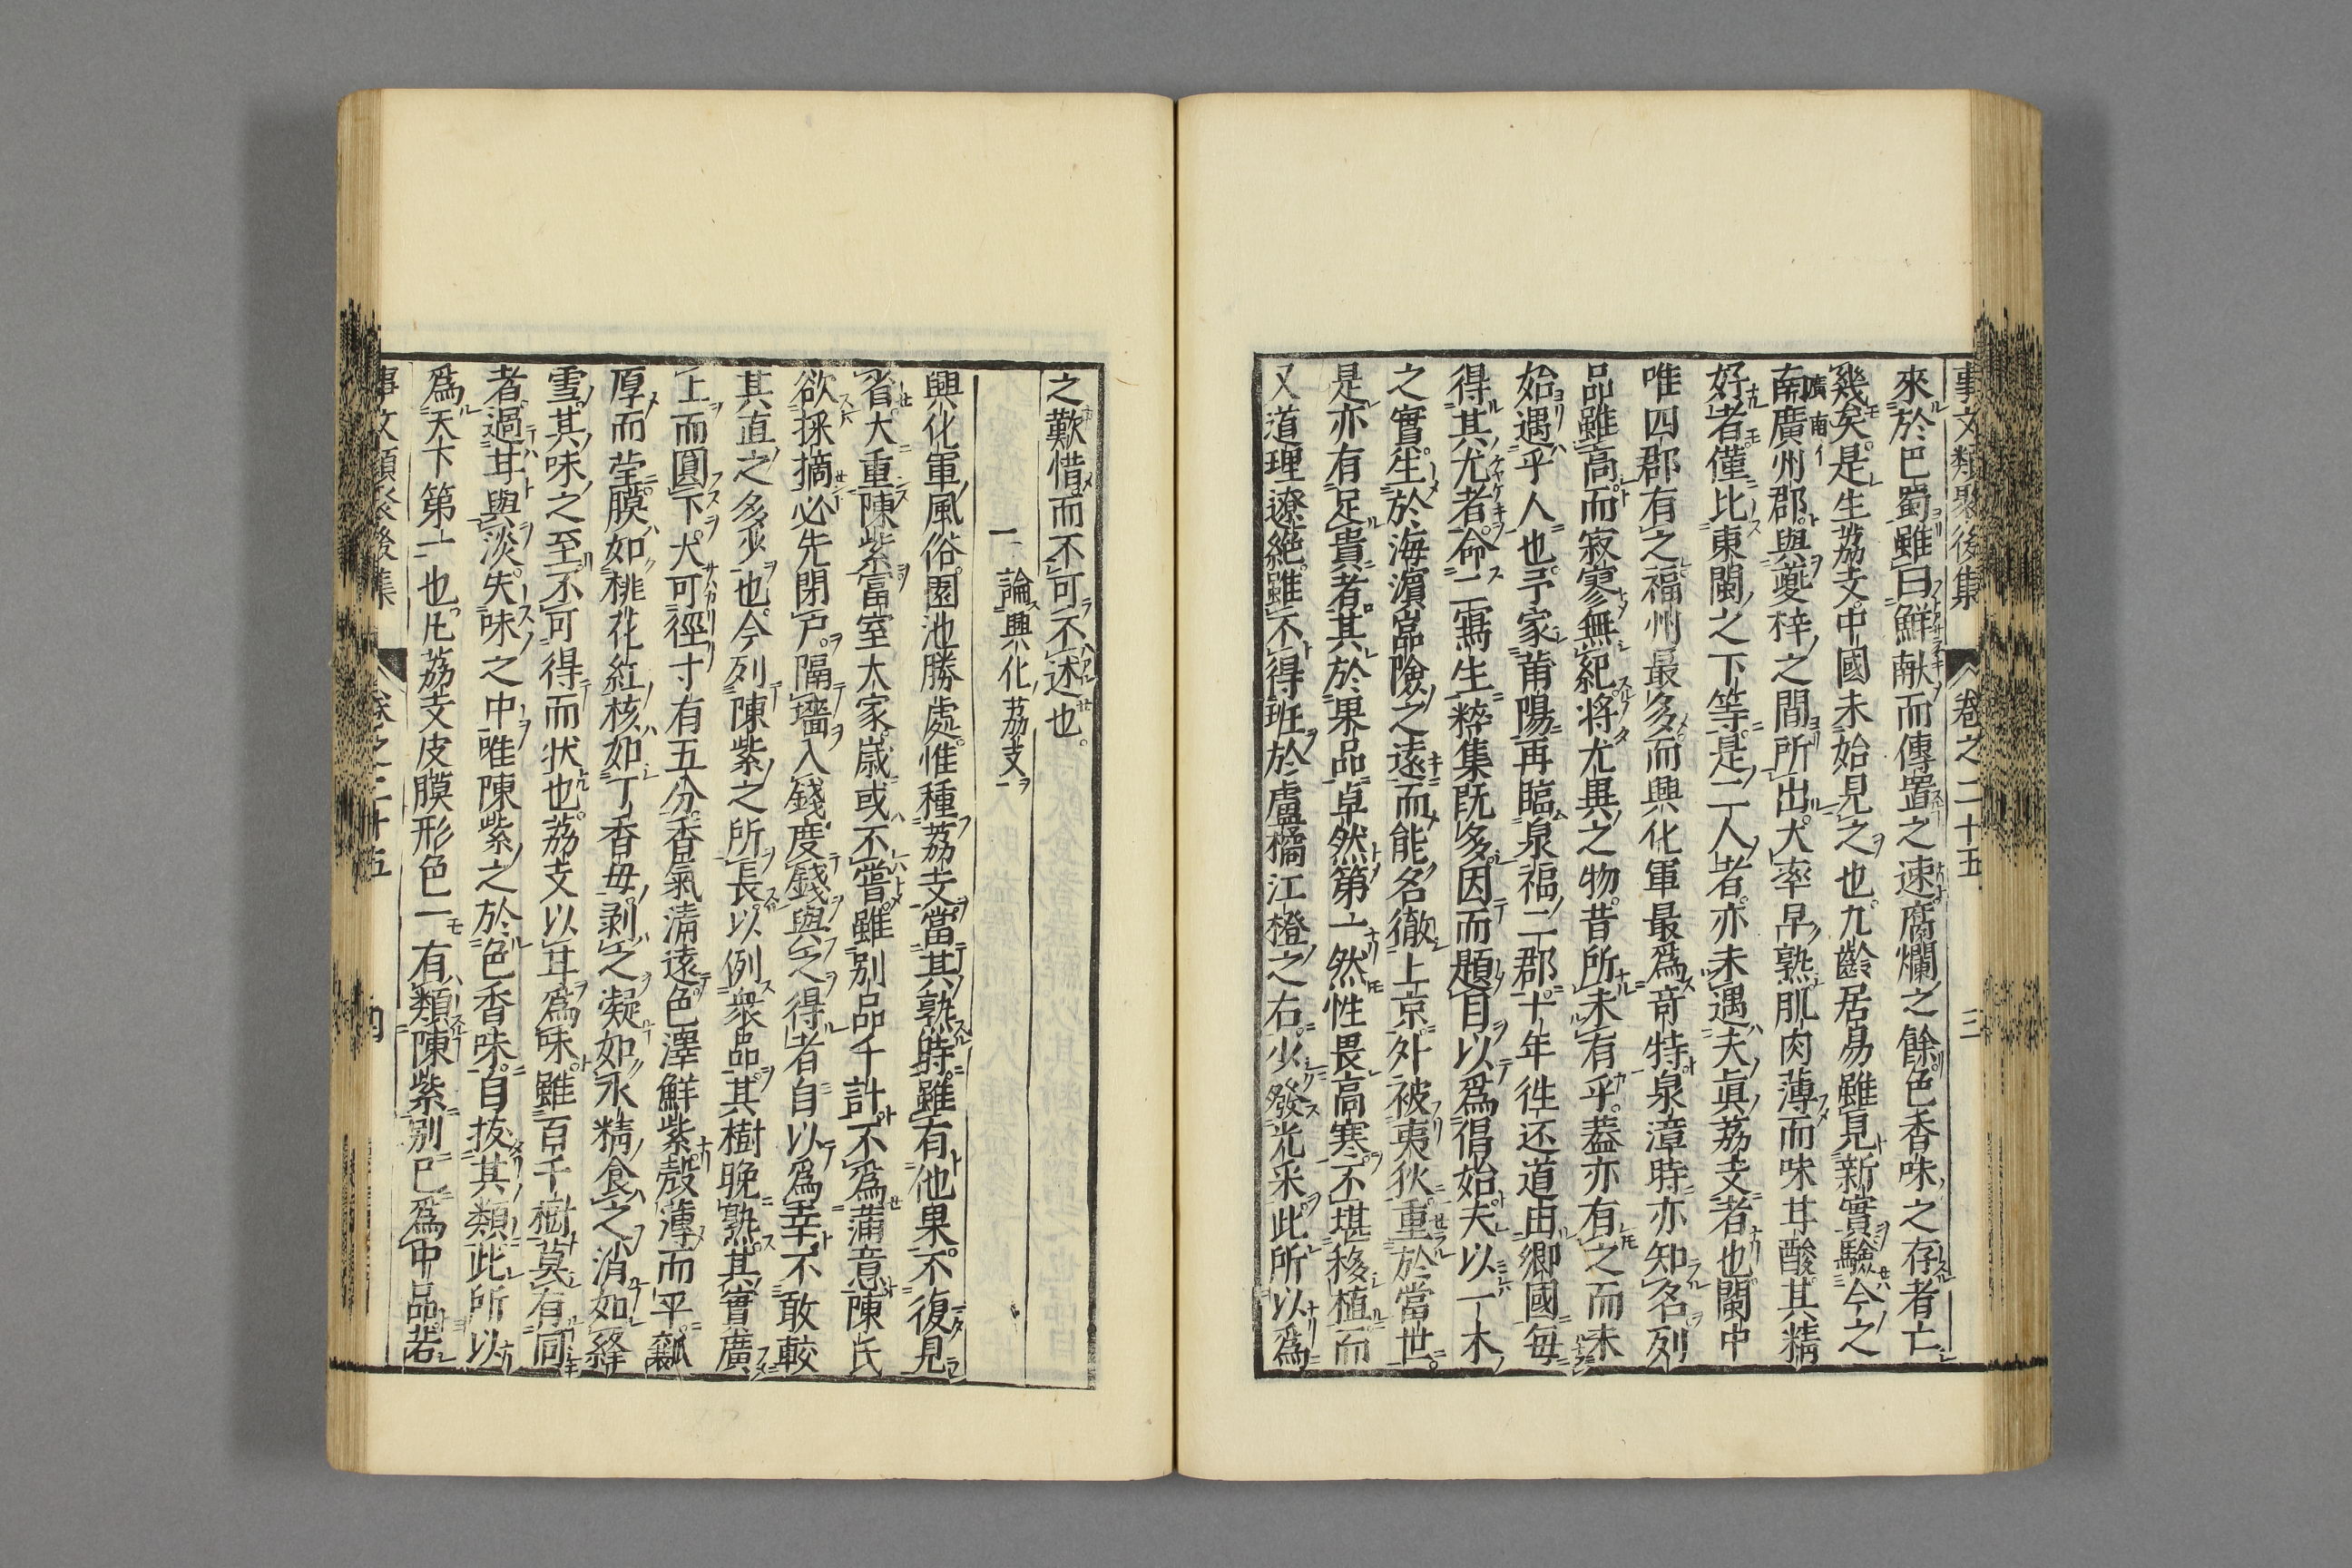 事文類聚後集 卷之二十五 三
來於巴蜀雖曰鮮献而傳置之速腐爛之餘色香味之存者亡
幾矣是生荔支中國未始見之也九齡居易雖見新實驗今之
南廣州郡與夔梓之間所出大率早熟肌肉薄而味甘酸其精
廣南イ
好者僅比東閩之下等是二人者亦未遇夫眞荔支者也閩中
唯四郡有之福州最多而興化軍最爲竒特泉漳時亦知名列
品雖高而寂寥無紀將尤異之物昔所未有乎蓋亦有之而未
始遇乎人也予家莆陽再臨泉福二郡十年徃还道由郷國毎
得其尤者命工寫生粹集既多因而題目以爲倡始夫以一木
之實生於海濵嵓險之遠而能名徹上京外被夷狄重於當世
是亦有足貴者其於果品卓然第一然性畏高寒不堪移植而
又道理遼絶雖不得班於盧橘江橙之右少發光采此所以爲
之歎惜而不可不述也
一 論興化荔支一
興化軍風俗園池勝處惟種荔支當其熟時雖有他果不復見
省大重陳紫富室大家歳或不嘗雖别品千計不爲蒲意陳氏
欲採摘必先閉戸隔墻入錢度錢與之得者自以爲幸不敢較
其直之多少也今列陳紫之所長以例衆品其樹晩熟其實廣
上而圓下大可徑寸有五分香氣清遠色澤鮮紫殻薄而平瓤
厚而瑩膜如桃花紅核如丁香毋剥之凝如水精食之消如絳
雪其味之至不可得而状也荔支以甘爲味雖百千樹莫有同
者過甘與淡失味之中唯陳紫之於色香味自抜其類此所以
爲天下第一也凡荔支皮膜形色一有類陳紫則已爲中品若
事文類聚後集 卷之二十五 四